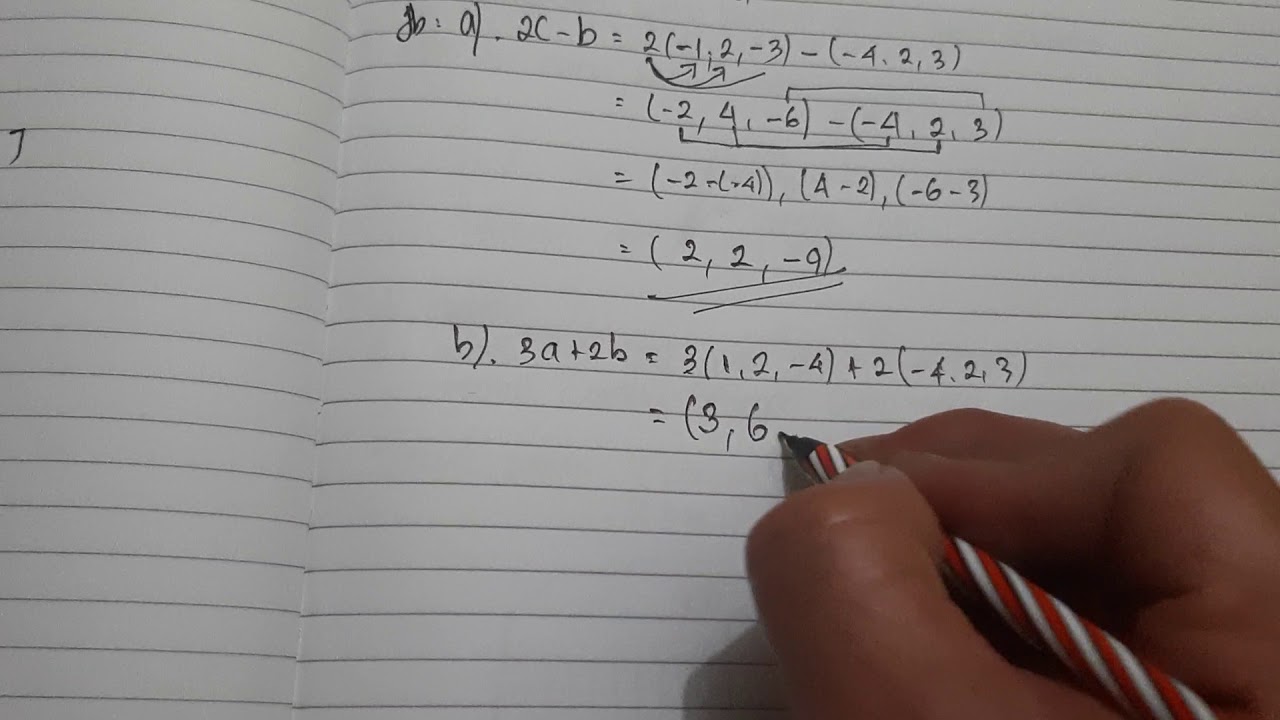 Jb: a). 2c - b = 2(-1, 2, -3) - (-4. 2, 3)
= (-2, 4, -6) - (-4, 2, 3)
= (-2 - (-4)), (4 - 2), (-6 - 3)
= (2, 2, -9)
b). 3a + 2b = 3(1, 2, -4) + 2(-4. 2, 3)
= (3, 6